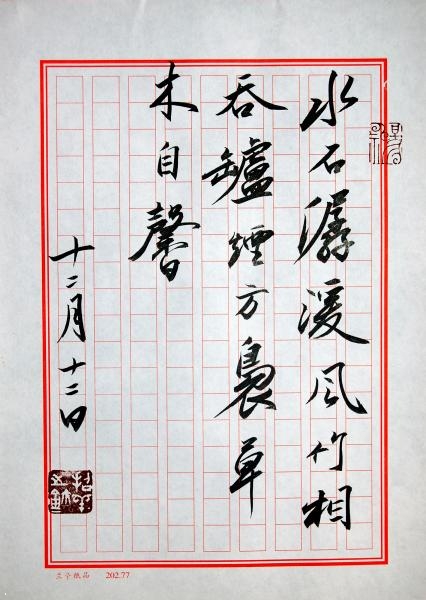 水石潺湲风竹相
吞罏煙方裊草
木自馨
十二月十二日
纸品 202.77